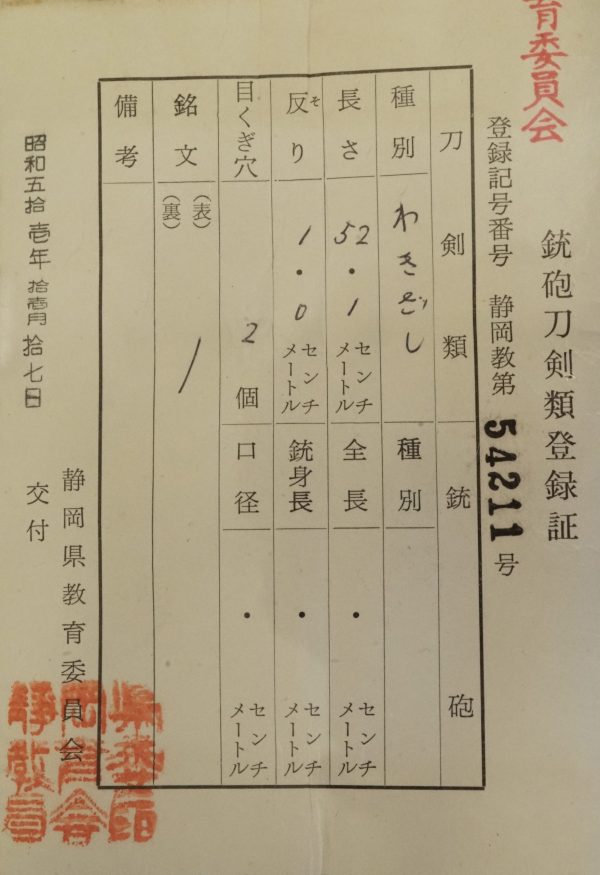 育委員会
銃砲刀剣類登録証
登録記号番号 静岡教第 54211 号
刀剣類 銃砲
種別 わきざし 種別
長さ 52・1 センチメートル 全長 ・ センチメートル
反り そ 1・0 センチメートル 銃身長 ・ センチメートル
目くぎ穴 2 個 口径 ・ センチメートル
銘文 (表) /
(裏)
備考
静岡県教育委員会
昭和五拾壱年拾壱月拾七日 交付